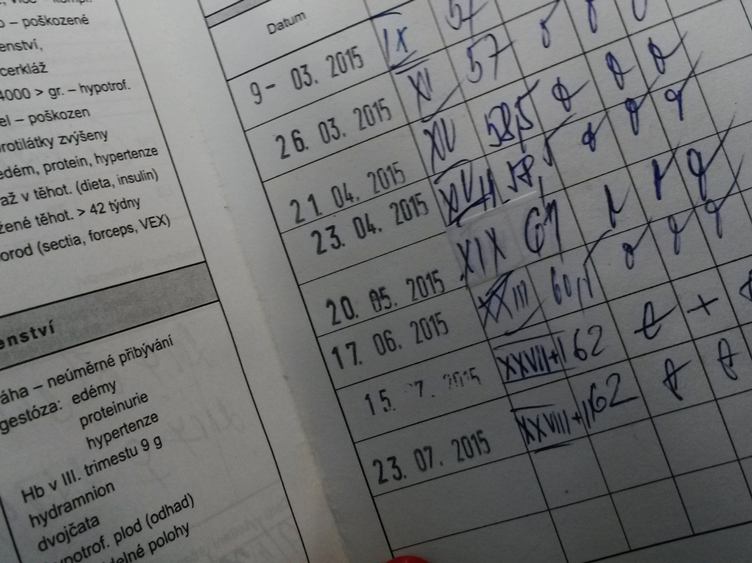 – poškozené
enství,
cerkláž
4000 > gr. – hypotrof.
el – poškozen
rotilátky zvýšeny
edém, protein, hypertenze
až v těhot. (dieta, insulin)
žené těhot. > 42 týdny
orod (sectia, forceps, VEX)
enství
áha – neúměrné přibývání
gestóza: edémy
proteinurie
hypertenze
Hb v III. trimestu 9 g
hydramnion
dvojčata
potrof. plod (odhad)
elné polohy
Datum
9- 03. 2015 IX 57
26. 03. 2015 XI 57
21. 04. 2015 XV 58,5
23. 04. 2015 XVII 58,5
20. 05. 2015 XIX 61
17. 06. 2015 XXIII 60,5
15. 7. 2015 XXVII+1 62
23. 07. 2015 XXVIII+1 62